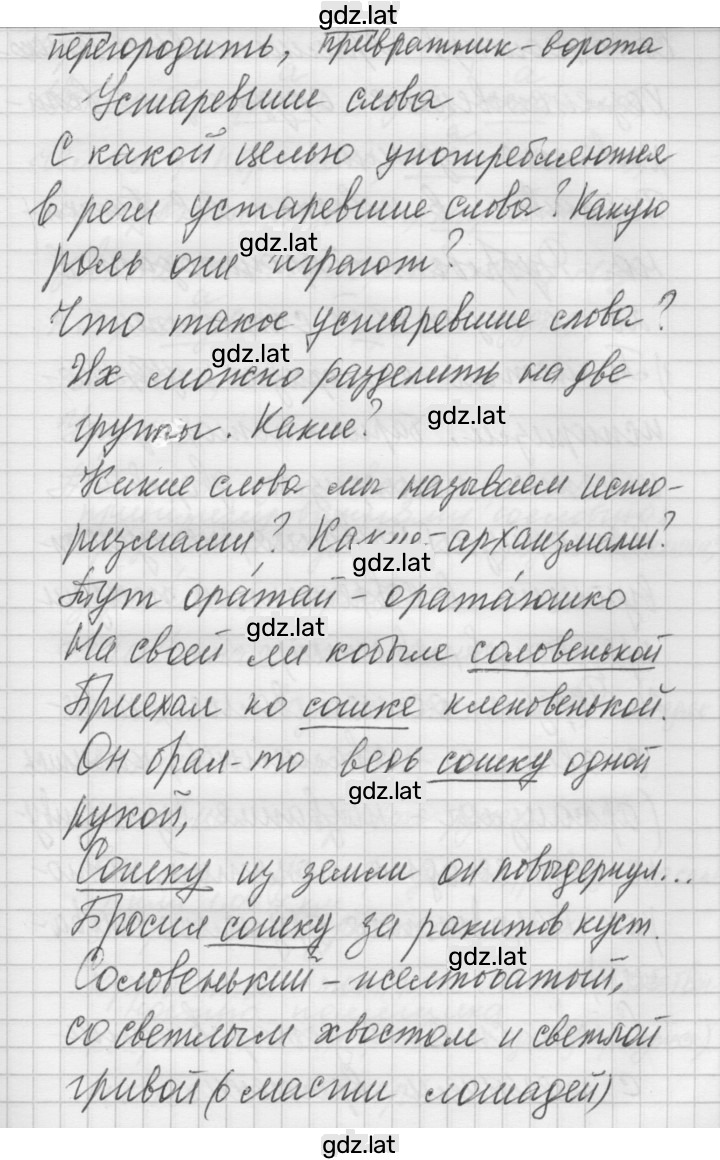 gdz.lat
перегородить, привратник - ворота
Устаревшие слова
С какой целью употребляются
в речи устаревшие слова? Какую
gdz.lat
роль они играют?
Что такое устаревшие слова?
gdz.lat
Их можно разделить на две
gdz.lat
группы. Какие?
Какие слова мы называем исто-
ризмами? Какие - архаизмами?
gdz.lat
Тут ора́тай - ората́юшко
gdz.lat
На своей ли кобыле соловенькой
Приехал ко сошке кленовенькой.
Он брал-то ведь сошку одной
gdz.lat
рукой,
Сошку из земли он повыдернул...
Бросил сошку за ракитов куст.
gdz.lat
Соловенький - желтоватый,
со светлым хвостом и светлой
гривой (о масти лошадей)
gdz.lat